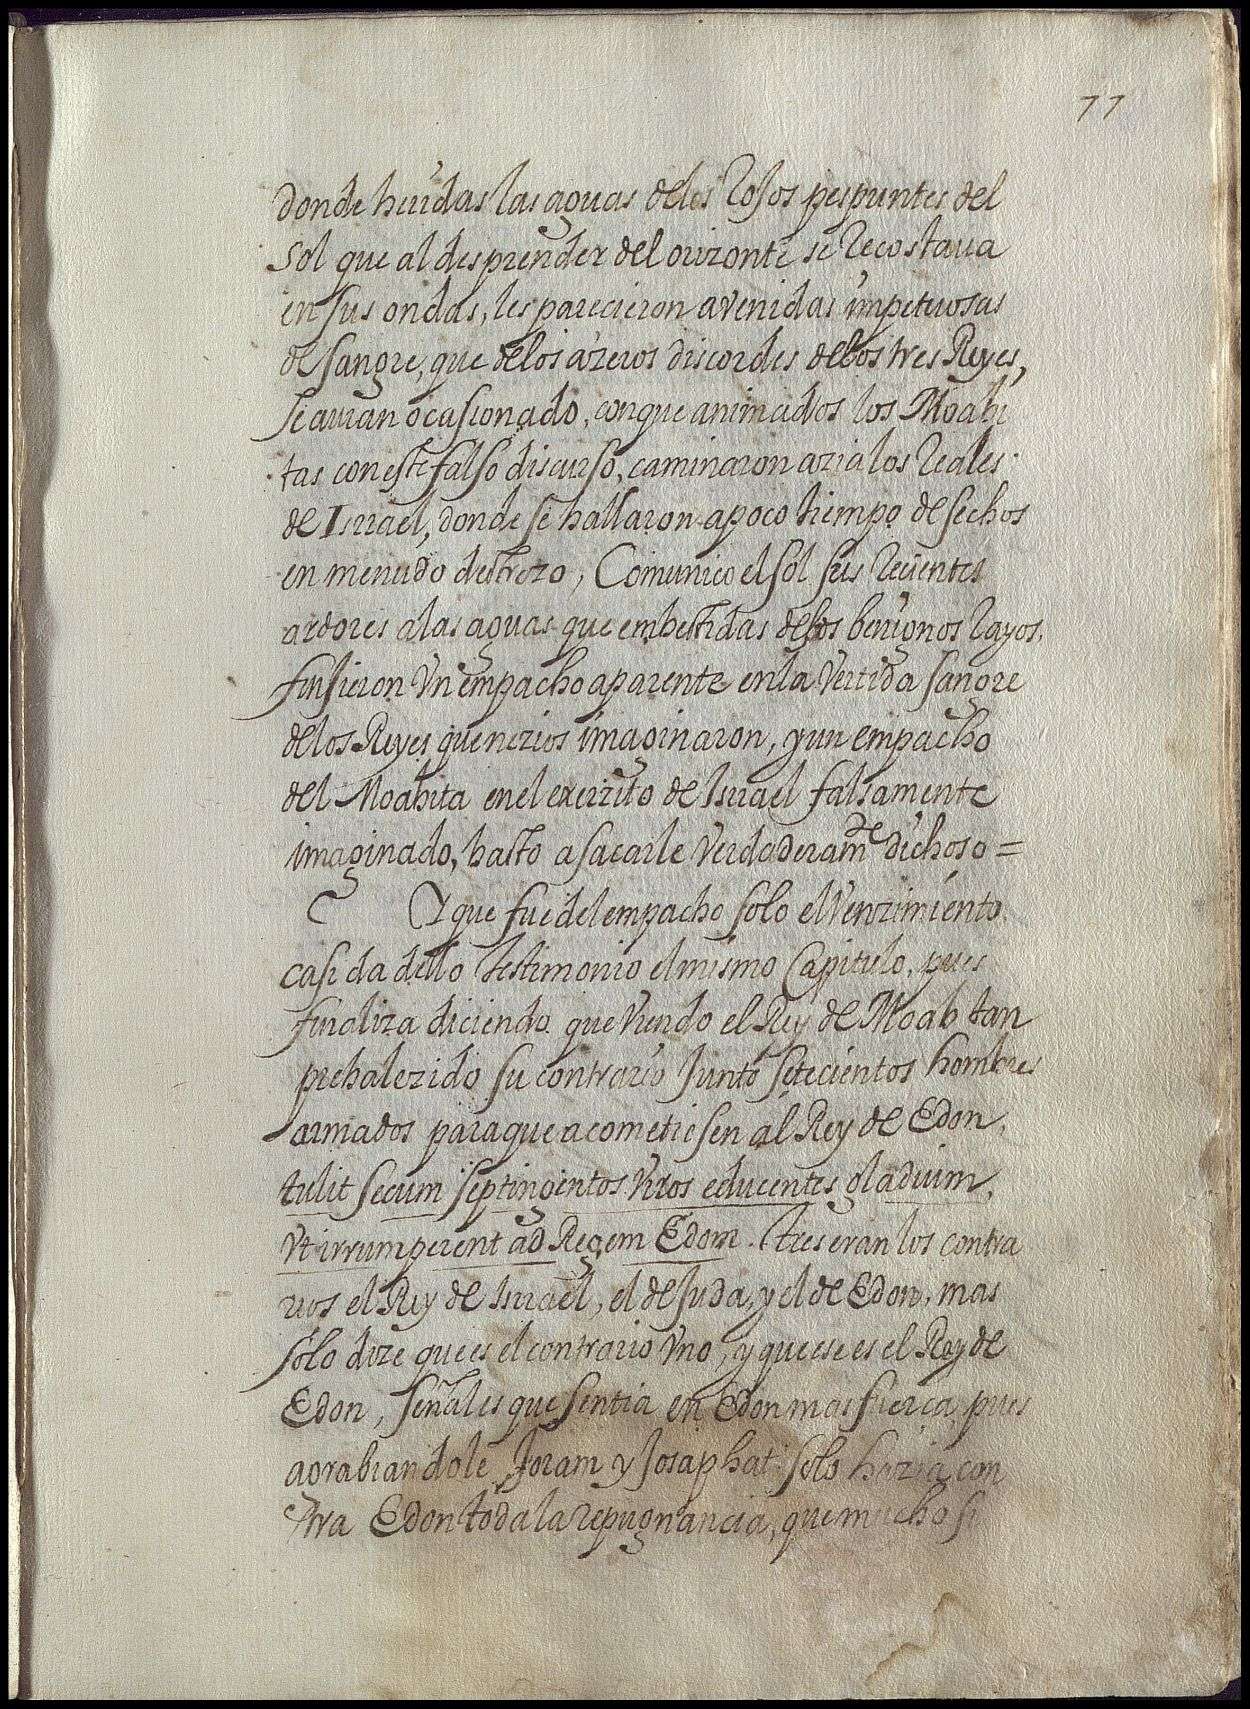 77
donde heridas las aguas delos Rojos pespuntes del
Sol que al desprender del orizonte se Recostaua
en sus ondas, les parecieron avenidas impetuosas
de sangre, que delos azeros discordes delos tres Reyes,
se auian ocasionado, conque animados los Moabi
tas con este falso discurso, caminaron azia los Reales
de Israel, donde se hallaron apoco tiempo desechos
en menudo destrozo, Comunico el sol sus Recientes
ardores alas aguas que embestidas delos benignos Rayos,
finsieron Vn empacho aparente enla Vertida sangre
delos Reyes que nezios imaginaron, y un empacho
del Moabita enel exerzito de Israel falsamente
imaginado, basto a sacarle Verdaderamte dichoso =
Y que fue del empacho solo el Venzimiento
casi da dello testimonio el mismo Capitulo, pues
finaliza diciendo que Viendo el Rey de Moab tan
prebalezido su contrario Junto setecientos hombres
armados paraque acometiesen al Rey de Edon,
tulit secum septingentos Viros educentes gladium,
Vt irrumperent ad Regem Edom. tres eran los contra
rios el Rey de Israel, el de Juda, y el de Edon, mas
solo dize que es el contrario Vno, y que ese es el Rey de
Edon, señales que sentia en Edon mas fuerca pues
agrabiandole Joram y Josaphat solo hazia con
tra Edon toda la repugnancia, que mucho si